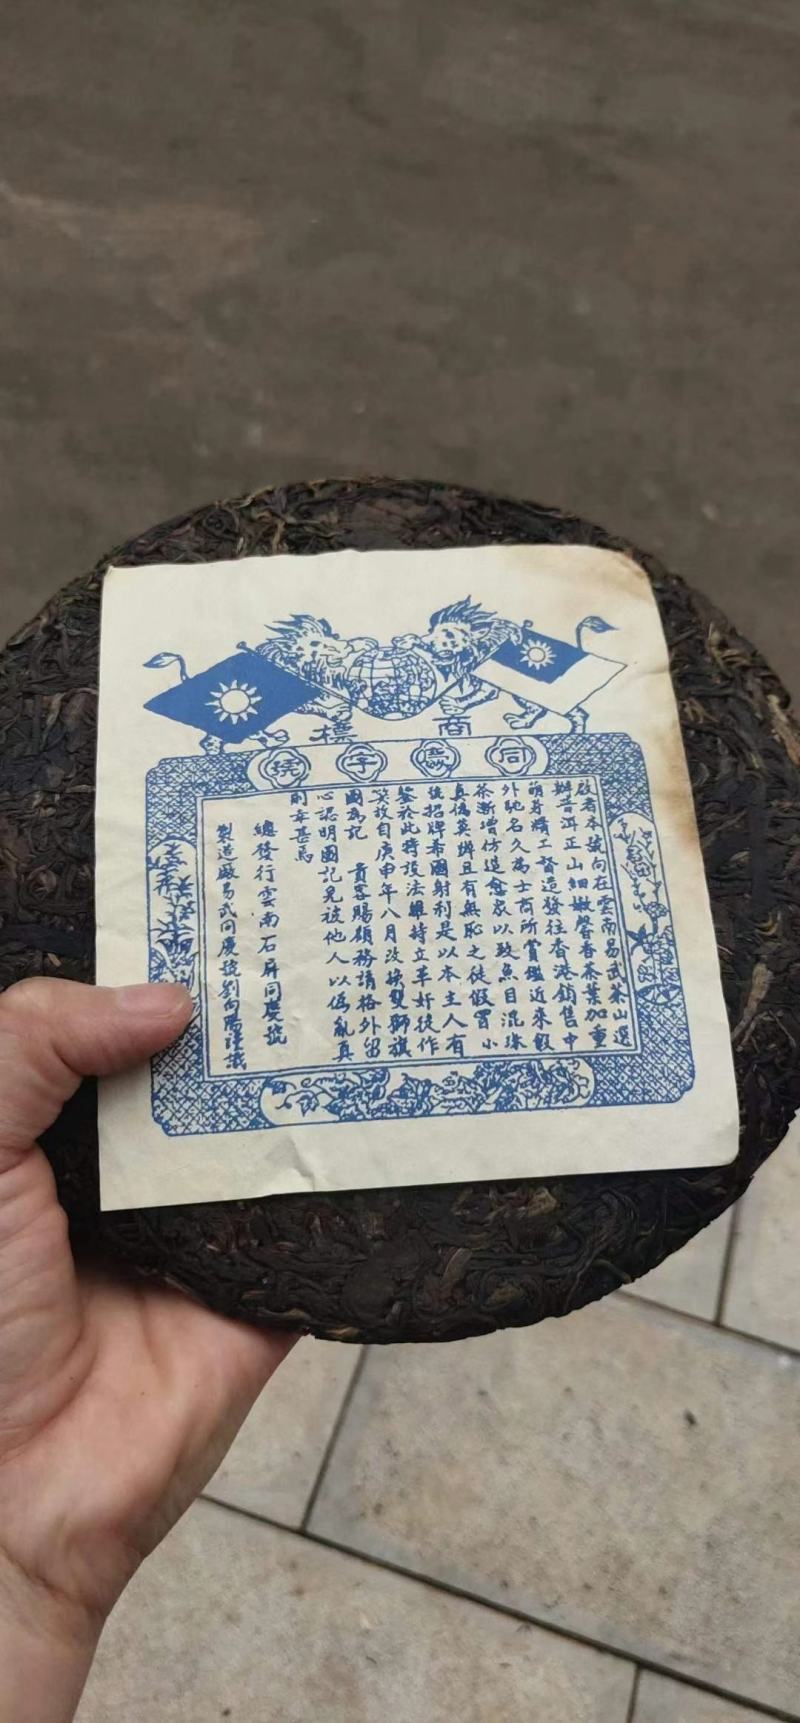 商標
同慶字號
啟者本號向在雲南易武茶山選
辦普洱正山細嫩馨香茶葉加重
萌芽精工督造發往香港銷售中
外馳名久為士商所賞鑑近來假
徐漸增仿造愈眾以致魚目混珠
真偽莫辦且有無恥之徒假冒小
號招牌希圖射利是以本主人有
鑒於此特設法維持立革奸徒作
笑故自庚申年八月改换雙獅旗
圖為記 貴客賜顧務請格外留
心認明圖記免被他人以偽亂真
則幸甚焉
總發行雲南石屏同慶號
製造廠易武同慶號劉向陽謹識